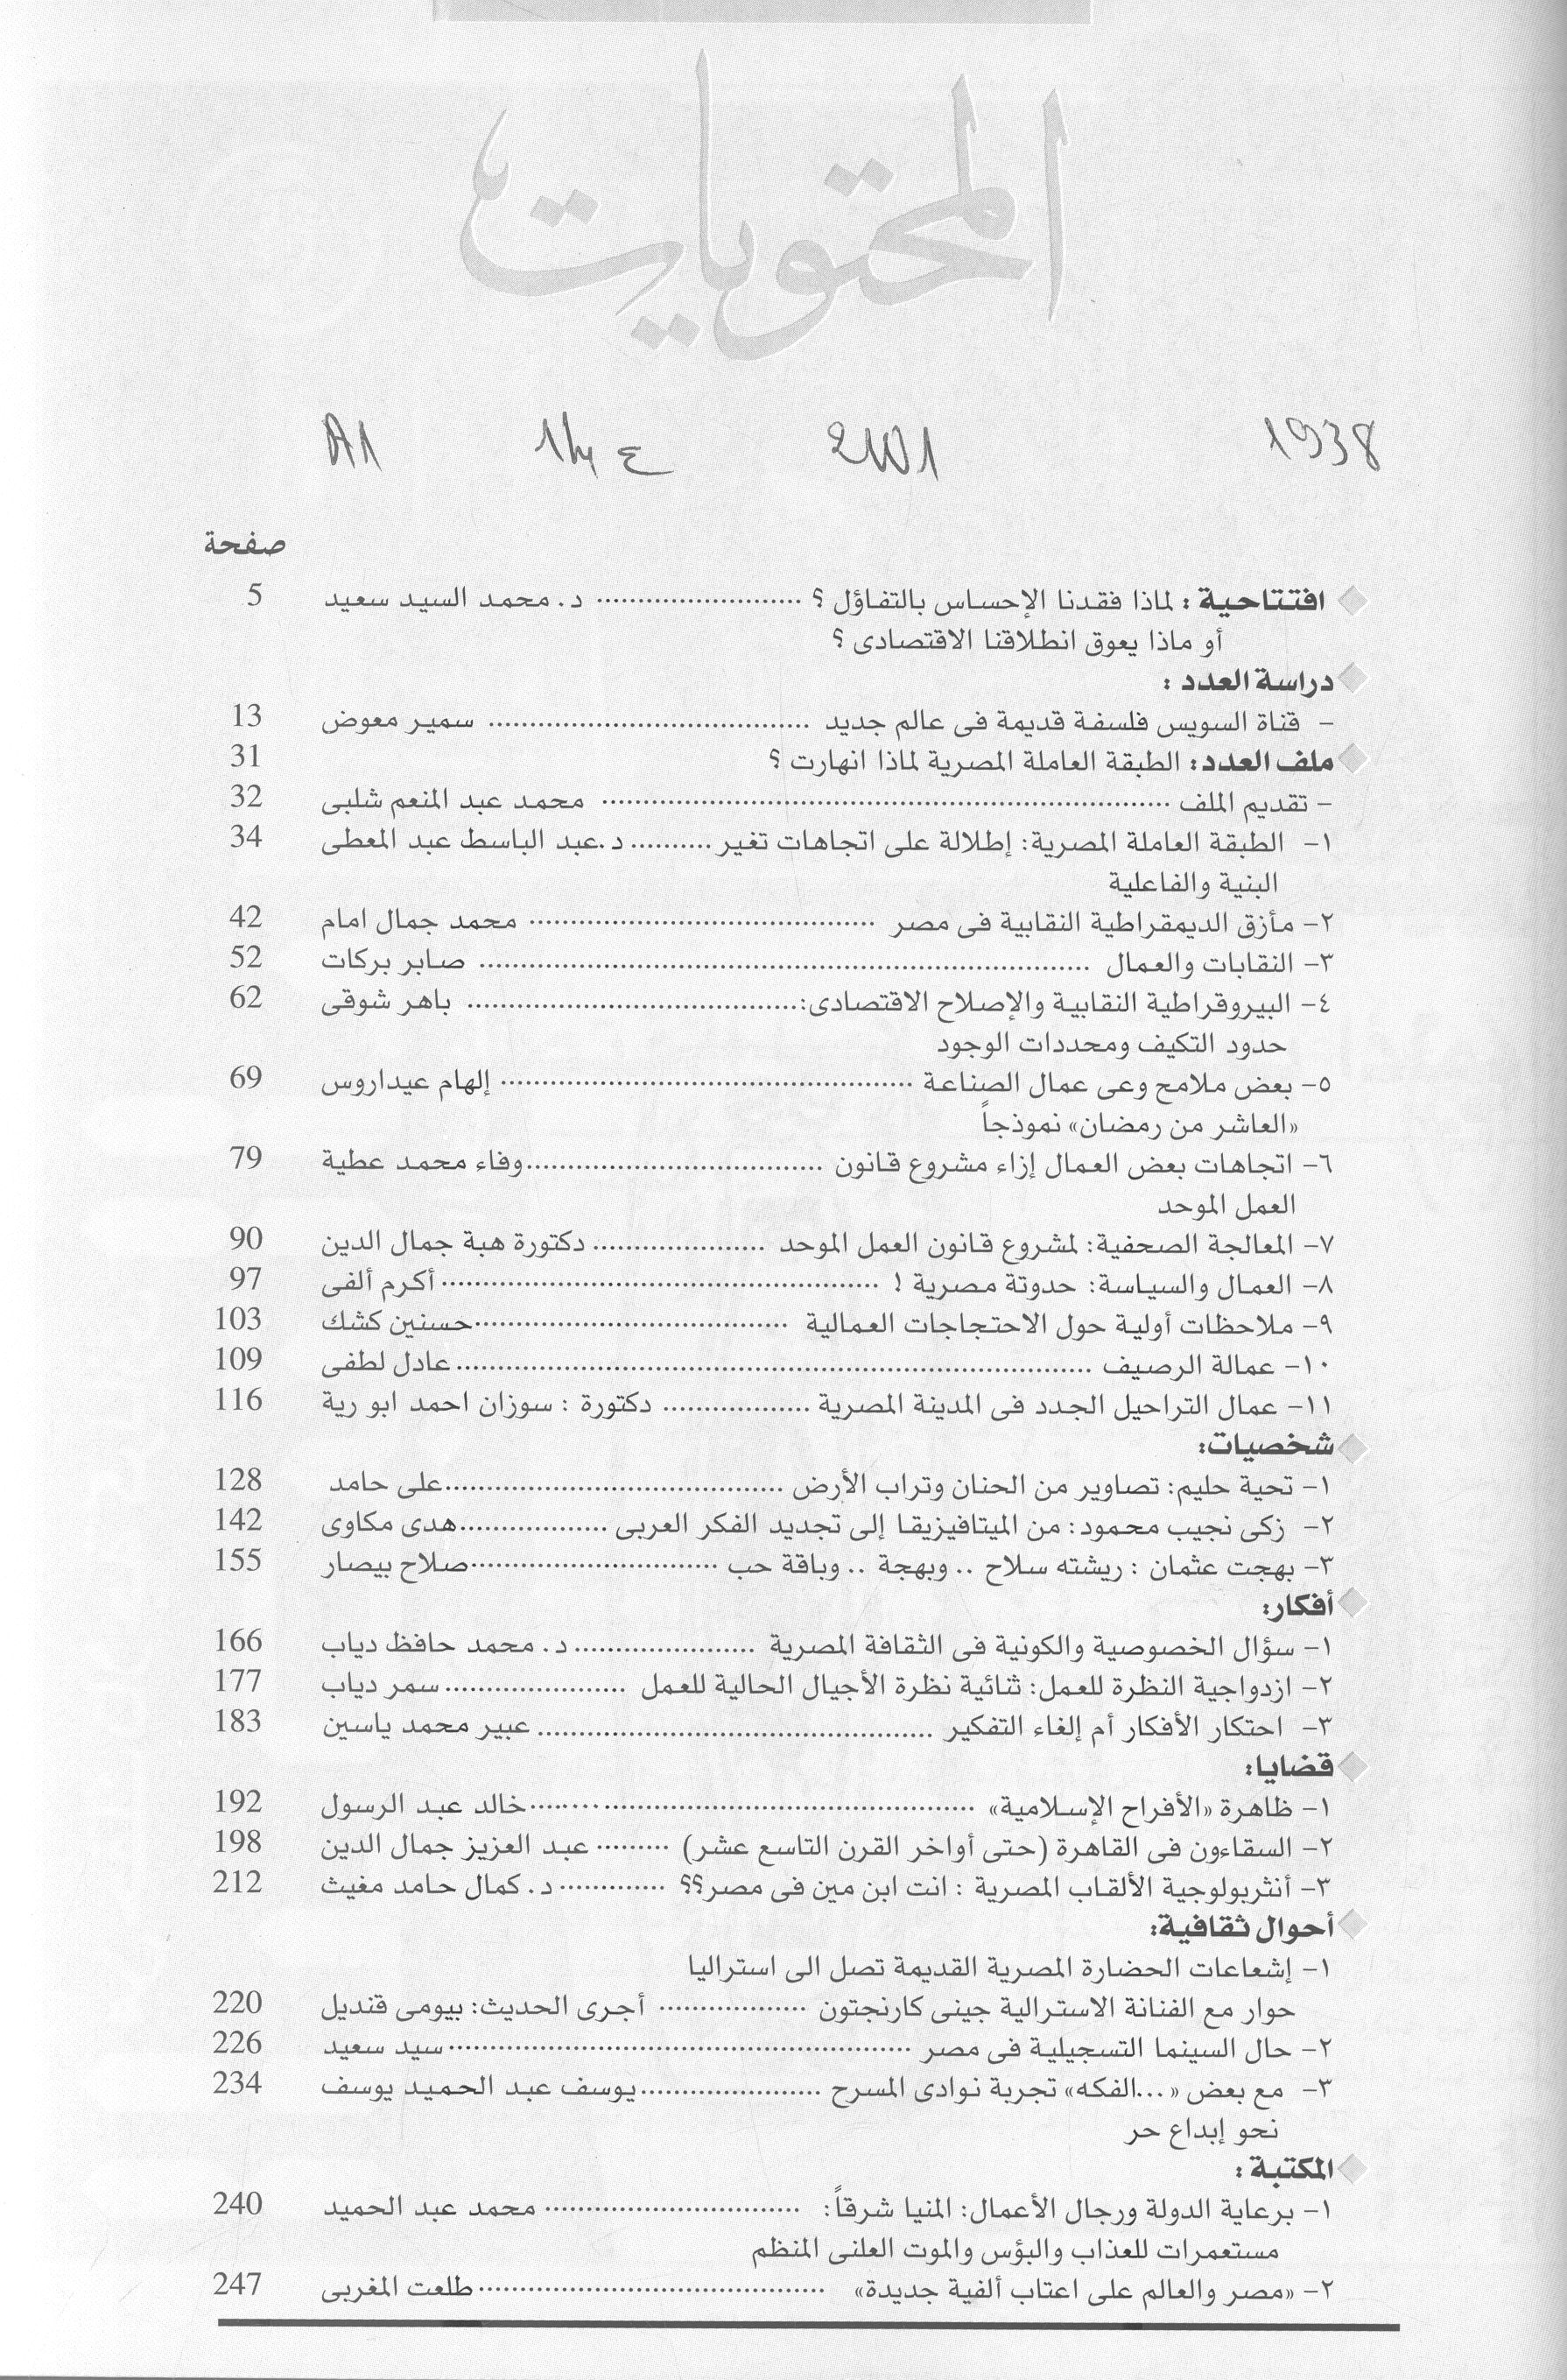 المحتويات
A1 ع 2001 1938
صفحة
افتتاحية : لماذا فقدنا الإحساس بالتفاؤل ؟ ........................ د. محمد السيد سعيد 5
أو ماذا يعوق انطلاقنا الاقتصادى ؟
دراسة العدد :
– قناة السويس فلسفة قديمة فى عالم جديد ........................ سمير معوض 13
ملف العدد: الطبقة العاملة المصرية لماذا انهارت ؟ 31
– تقديم الملف ........................ محمد عبد المنعم شلبى 32
١– الطبقة العاملة المصرية: إطلالة على اتجاهات تغير .......... د.عبد الباسط عبد المعطى 34
البنية والفاعلية
٢– مأزق الديمقراطية النقابية فى مصر ........................ محمد جمال امام 42
٣– النقابات والعمال ........................ صابر بركات 52
٤– البيروقراطية النقابية والإصلاح الاقتصادى:........................ باهر شوقى 62
حدود التكيف ومحددات الوجود
٥– بعض ملامح وعى عمال الصناعة ........................ إلهام عيداروس 69
«العاشر من رمضان» نموذجاً
٦– اتجاهات بعض العمال إزاء مشروع قانون ........................وفاء محمد عطية 79
العمل الموحد
٧– المعالجة الصحفية: لمشروع قانون العمل الموحد .................... دكتورة هبة جمال الدين 90
٨– العمال والسياسة: حدوتة مصرية ! ........................ أكرم ألفى 97
٩– ملاحظات أولية حول الاحتجاجات العمالية ........................حسنين كشك 103
١٠– عمالة الرصيف ........................عادل لطفى 109
١١– عمال التراحيل الجدد فى المدينة المصرية ................. دكتورة : سوزان احمد ابو رية 116
شخصيات:
١– تحية حليم: تصاوير من الحنان وتراب الأرض ........................على حامد 128
٢– زكى نجيب محمود: من الميتافيزيقا إلى تجديد الفكر العربى .................هدى مكاوى 142
٣– بهجت عثمان : ريشته سلاح .. وبهجة .. وباقة حب ........................صلاح بيصار 155
أفكار:
١– سؤال الخصوصية والكونية فى الثقافة المصرية .....................د. محمد حافظ دياب 166
٢– ازدواجية النظرة للعمل: ثنائية نظرة الأجيال الحالية للعمل .....................سمر دياب 177
٣– احتكار الأفكار أم إلغاء التفكير ........................عبير محمد ياسين 183
قضايا:
١– ظاهرة «الأفراح الإسلامية» ........................خالد عبد الرسول 192
٢– السقاءون فى القاهرة (حتى أواخر القرن التاسع عشر) ......... عبد العزيز جمال الدين 198
٣– أنثربولوجية الألقاب المصرية : انت ابن مين فى مصر؟؟ ............د. كمال حامد مغيث 212
أحوال ثقافية:
١– إشعاعات الحضارة المصرية القديمة تصل الى استراليا
حوار مع الفنانة الاسترالية جينى كارنجتون ................. أجرى الحديث: بيومى قنديل 220
٢– حال السينما التسجيلية فى مصر ........................سيد سعيد 226
٣– مع بعض «...الفكه» تجربة نوادى المسرح .....................يوسف عبد الحميد يوسف 234
نحو إبداع حر
المكتبة :
١– برعاية الدولة ورجال الأعمال: المنيا شرقاً: ........................ محمد عبد الحميد 240
مستعمرات للعذاب والبؤس والموت العلنى المنظم
٢– «مصر والعالم على اعتاب ألفية جديدة» ........................طلعت المغربى 247